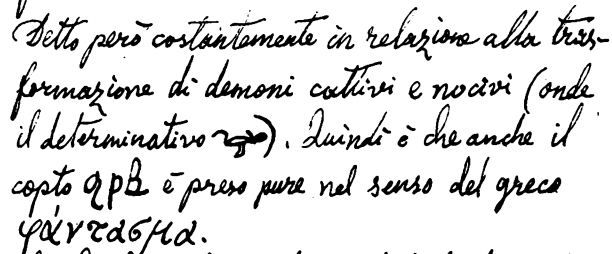 Detto però costantemente in relazione alla tras-
formazione di demoni cattivi e nocivi (onde
il determinativo ). Quindi è che anche il
copto ϥⲣⲃ è preso pure nel senso del greco
φάντασμα.